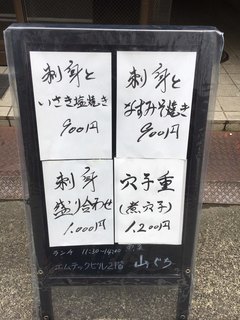 刺身と
いさき塩焼き
900円
刺身と
なすみそ焼き
900円
刺身
盛り合わせ
1.000円
穴子重
(煮穴子)
1.200円
ランチ 11:30~14:00
エムテックビル2階 山ぐち